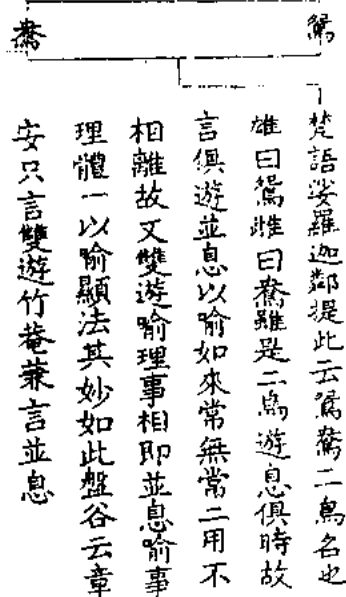 鴛
鴦
梵語娑羅迦鄰提此云鴛鴦二鳥名也
雄曰鴛雌曰鴦雖是二鳥遊息俱時故
言俱遊並息以喻如來常無常二用不
相離故又雙遊喻理事相即並息喻事
理體一以喻顯法其妙如此盤谷云章
安只言雙遊竹菴兼言並息